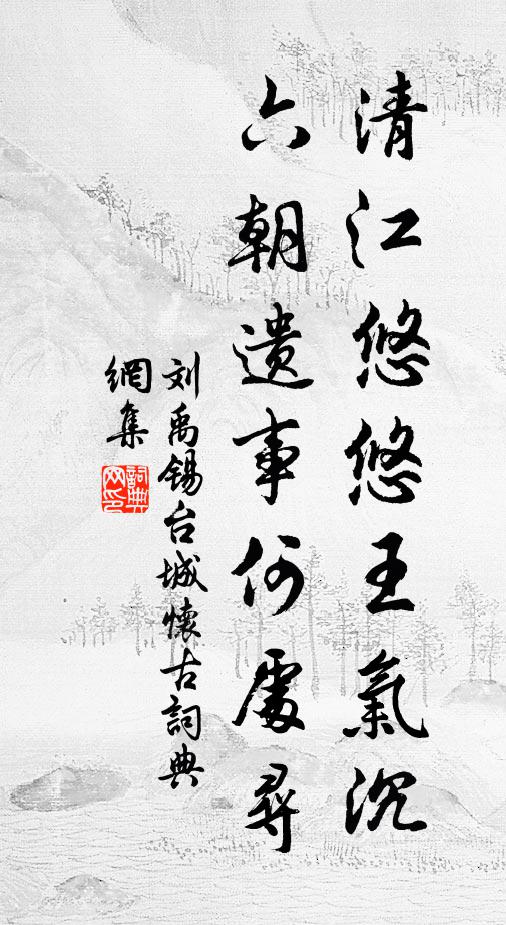 清江悠悠王氣沉
六朝遺事何處尋
刘禹锡台城懷古詞典
網集
詞典
网印